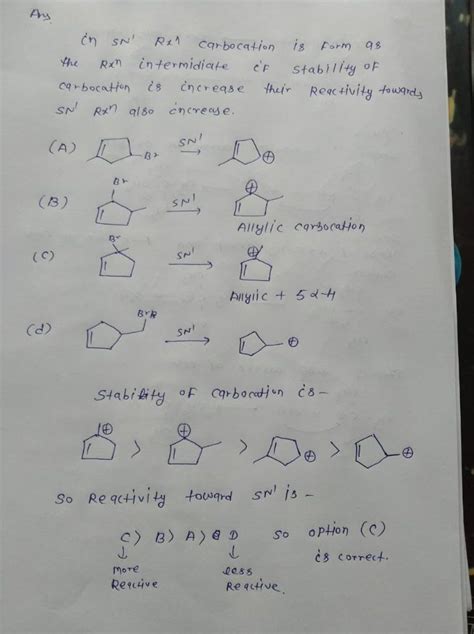 Ans
in SN1 Rxn carbocation is form as
the Rxn intermidiate if stability of
carbocation is increase their Reactivity towards
SN1 Rxn also increase.
(A) Br SN1 → ⊕
(B) Br SN1 → ⊕
Allylic carbocation
(C) Br SN1 → ⊕
Allylic + 5 α-H
(d) Br SN1 → ⊕
Stability of carbocation is -
⊕ > ⊕ > ⊕ > ⊕
So Reactivity toward SN1 is -
C > B > A > D so option (C)
↓ ↓ is correct.
more less
Reactive Reactive.